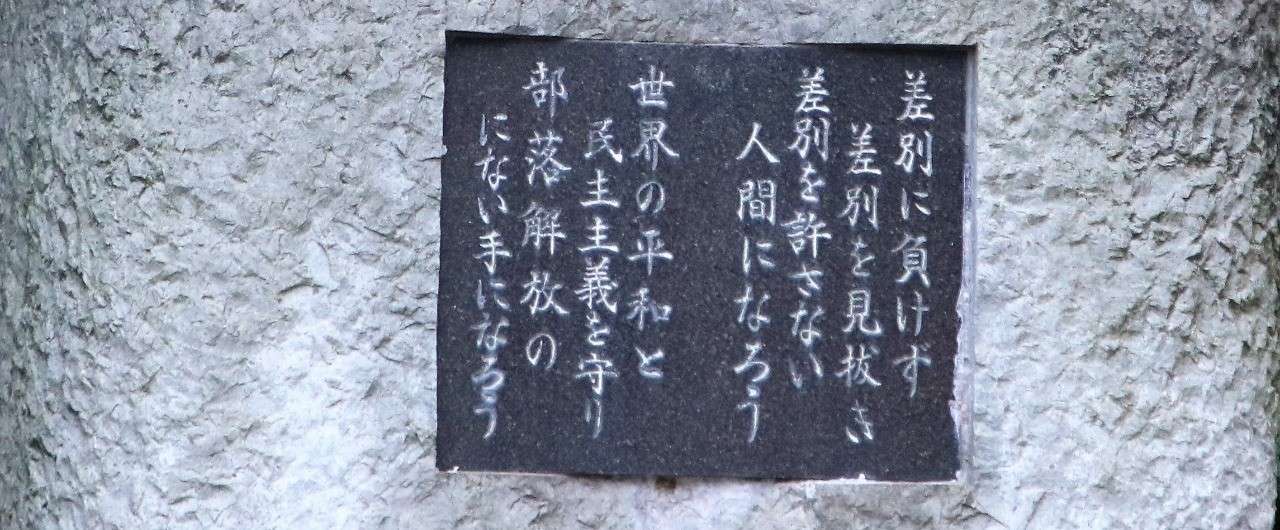 差別に負けず
差別を見抜き
差別を許さない
人間になろう
世界の平和と
民主主義を守り
部落解放の
にない手になろう